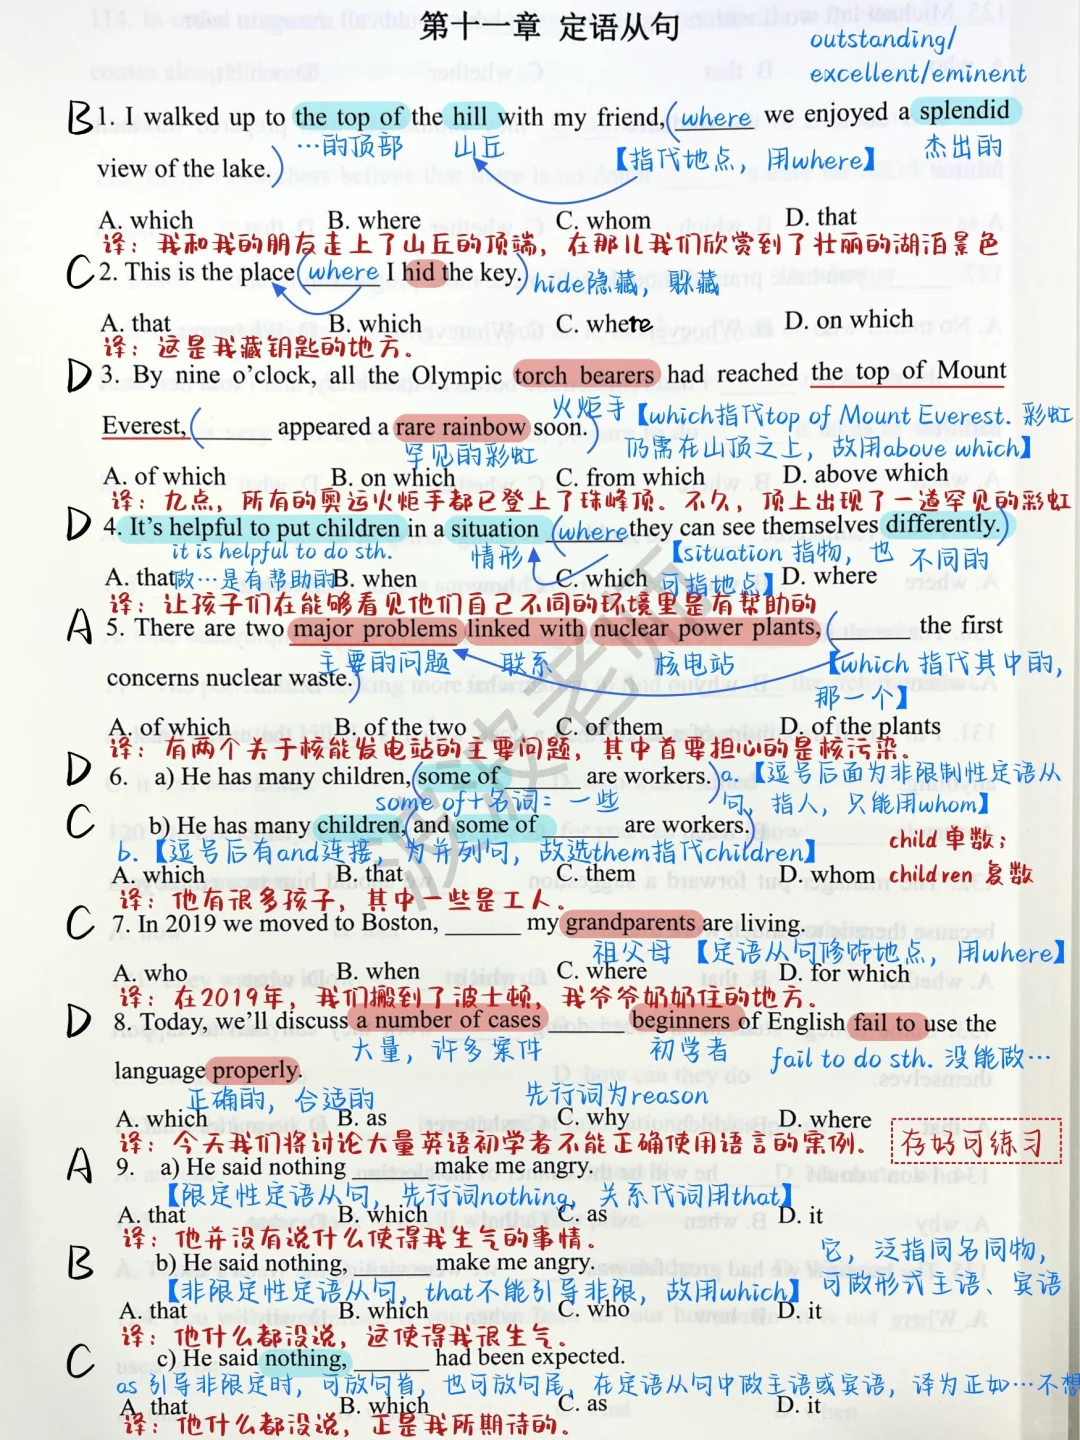 第十一章 定语从句
outstanding/
excellent/eminent
B 1. I walked up to the top of the hill with my friend, (where we enjoyed a splendid
…的顶部 山丘 【指代地点，用where】 杰出的
view of the lake.)
A. which B. where C. whom D. that
译：我和我的朋友走上了山丘的顶端，在那儿我们欣赏到了壮丽的湖泊景色
C 2. This is the place (where I hid the key.) hide隐藏，躲藏
A. that B. which C. where D. on which
译：这是我藏钥匙的地方。
D 3. By nine o'clock, all the Olympic torch bearers had reached the top of Mount
火炬手 【which指代top of Mount Everest. 彩虹
Everest, (______ appeared a rare rainbow soon.)
罕见的彩虹 仍需在山顶之上，故用above which】
A. of which B. on which C. from which D. above which
译：九点，所有的奥运火炬手都已登上了珠峰顶。不久，顶上出现了一道罕见的彩虹
D 4. It's helpful to put children in a situation (where they can see themselves differently.)
it is helpful to do sth. 情形 【situation 指物，也 不同的
A. that B. when C. which D. where
做…是有帮助的 可指地点】
译：让孩子们在能够看见他们自己不同的环境里是有帮助的
A 5. There are two major problems linked with nuclear power plants, (______ the first
主要的问题 联系 核电站 【which 指代其中的，
concerns nuclear waste.)
那一个】
A. of which B. of the two C. of them D. of the plants
译：有两个关于核能发电站的主要问题，其中首要担心的是核污染。
D 6. a) He has many children, (some of ______ are workers.) a.【逗号后面为非限制性定语从
some of+名词：一些 句，指人，只能用whom】
C b) He has many children, (and some of ______ are workers.)
child 单数；
b.【逗号后有and连接，为并列句，故选them指代children】
A. which B. that C. them D. whom children 复数
译：他有很多孩子，其中一些是工人。
C 7. In 2019 we moved to Boston, ______ my grandparents are living.
祖父母 【定语从句修饰地点，用where】
A. who B. when C. where D. for which
译：在2019年，我们搬到了波士顿，我爷爷奶奶住的地方。
D 8. Today, we'll discuss a number of cases ______ beginners of English fail to use the
大量，许多案件 初学者 fail to do sth. 没能做…
language properly.
正确的，合适的 先行词为reason
A. which B. as C. why D. where
译：今天我们将讨论大量英语初学者不能正确使用语言的案例。
存好可练习
A 9. a) He said nothing ______ make me angry.
【限定性定语从句，先行词nothing，关系代词用that】
A. that B. which C. as D. it
译：他并没有说什么使得我生气的事情。
B b) He said nothing, ______ make me angry.
它，泛指同名同物，
【非限定性定语从句，that不能引导非限，故用which】 可做形式主语、宾语
A. that B. which C. who D. it
译：他什么都没说，这使得我很生气。
C c) He said nothing, ______ had been expected.
as 引导非限定时，可放句首，也可放句尾，在定语从句中做主语或宾语，译为正如…不想
A. that B. which C. as D. it
译：他什么都没说，正是我所期待的。
波波老师